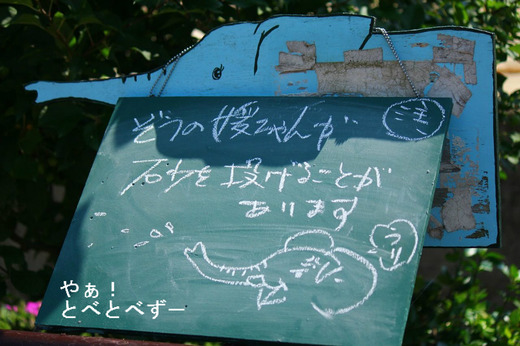 ぞうの媛ちゃんが 注
砂を投げることが
あります
やぁ！
とべとべずー